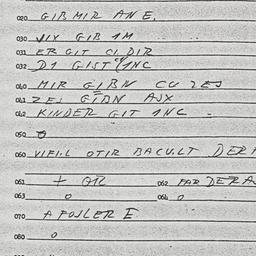 020 GIB MIR AN E.
030 GIB 1M
031 ER GIT CI DIR
032 D1 GIST 1NC
040 MIR GIBN CU ZES
041 ZES GIBN AJX
042 KINDER GIT 1NC
050 0
060 VIFIL OTIR BACULT DERA
061 + QR 062 FAD DERA
063 0 064 0
070 A FOJLER E
080 0